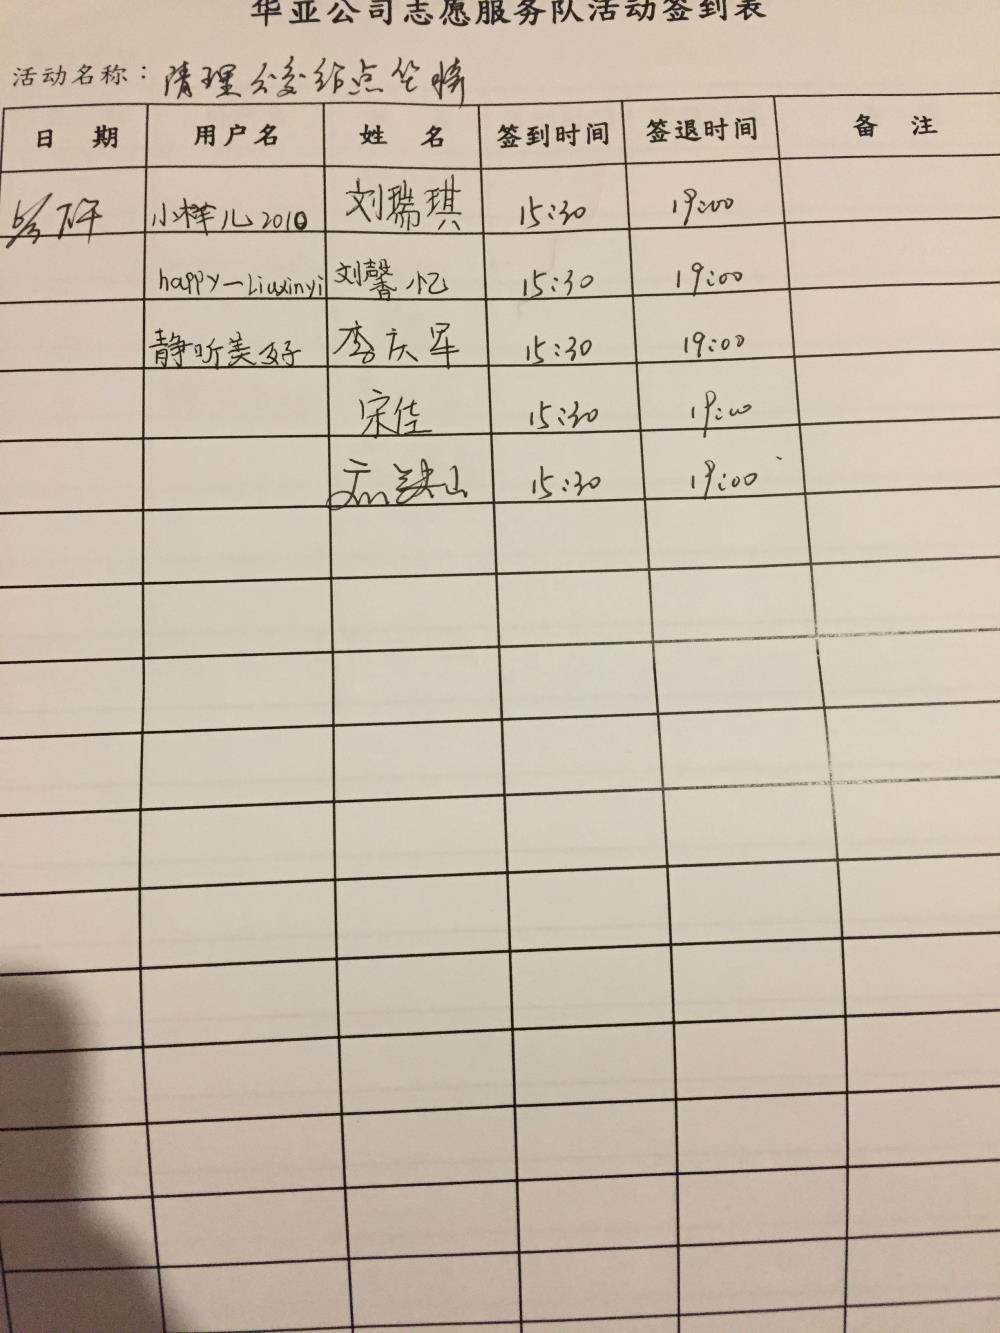 华亚公司志愿服务队活动签到表
活动名称：清理公交站点垃圾
日 期 用户名 姓 名 签到时间 签退时间 备 注
下午 小样儿2010 刘瑞琪 15:30 19:00
happy—Liuxinyi 刘馨忆 15:30 19:00
静听美好 李庆军 15:30 19:00
宋佳 15:30 19:00
15:30 19:00